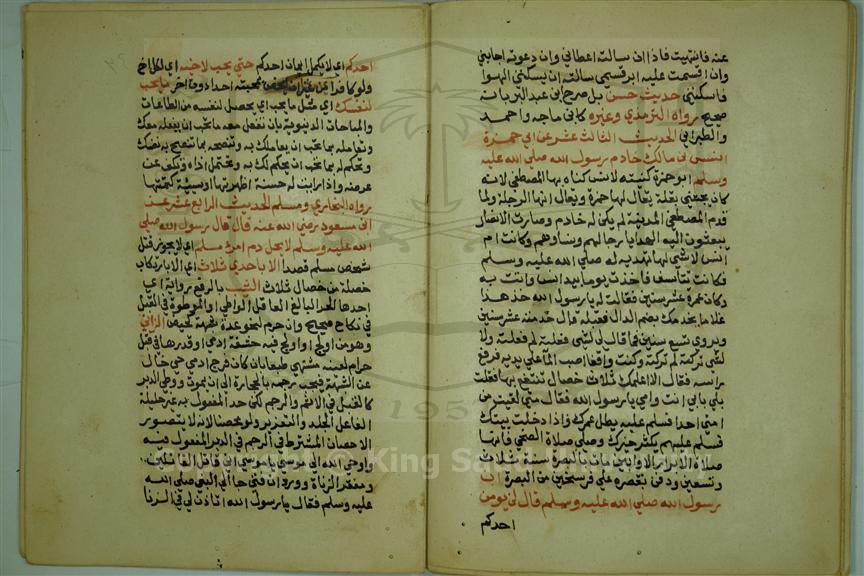 عنه فانتهيت فاذا ان سالته اعطاني وان دعوته اجابني
وان اقسمت عليه ابر قسمي سالته ان يسكنني الهوا
فاسكنني حديث حسن بل صرح ابن عبد البر بانه
صحيح رواه الترمذي وغيره كابن ماجه واحمد
والطبراني الحديث الثالث عشر عن ابي حمزة
انس بن مالك خادم رسول الله صلي الله عليه
وسلم ابو حمزة كنيته لانس كناه بها المصطفي لانه
كان يجتني بقلة يقال لها حمزة ويقال انها الرجلة ولما
قدم المصطفي المدينة لم يكن له خادم وصارت الانصار
يبعثون اليه الهدايا رجالهم ونساوهم وكانت ام
انس لا شي لها تهديه له صلي الله عليه وسلم
فكانت تتاسف فاخذت يوما بيد انس واتت به
وكان عمره عشر سنين فقالت له يا رسول الله خذ هذا
غلاما يخدمك بضم الدال فقبله قال خدمته عشر سنين
ويروي تسع سنين فما قال لي لشي فعلته لم فعلته ولا
لشي تركته لم تركته وكنت واقفا اصب الما علي يديه فرفع
راسه فقال الا اعلمك ثلاث خصال تنتفع بها فقلت
بلي بابي انت وامي يا رسول الله فقال متي لقيت من
امتي احدا فسلم عليه يطل عمرك واذا دخلت بيتك
فسلم عليهم يكثر خيرك وصلي صلاة الضحي فانها
صلاة الابرار الاوابين مات بالبصرة سنة ثلاث
وتسعين ودفن بقصره علي فرسخين من البصرة ان
رسول الله صلي الله عليه وسلم قال لا يومن
احدكم
احدكم اي لا يكمل ايمان احدكم حتي يحب لاخيه اي
ولو كافرا من غير ان يخص بمحبته احدا دون اخر ما يحب
لنفسك اي مثل ما يحب اي يحصل لنفسه من الطاعات
والمباحات الدنيوية بان تفعل معه ما تحب ان يفعله معك
وتعامله بما تحب ان يعاملك به وتنصحه بما تنصح به نفسك
وتحكم له بما تحب ان يحكم لك به وتحتمل اذاه وتكف عن
عرضه واذا رايت له حسنة اظهرتها او سيئة كتمتها
رواه البخاري ومسلم الحديث الرابع عشر عن
ابن مسعود رضي الله عنه قال قال رسول الله صلي
الله عليه وسلم لا يحل دم امرئ مسلم اي لا يجوز قتل
شخص مسلم قصدا الا باحدي ثلاث اي الا بارتكاب
خصلة من خصال ثلاث الثيب بالرفع رواية اي
احدها الحد البالغ العاقل الواطي او الموطوة في القبل
في نكاح صحيح وان حرم لنحو عدة شبهة كحيض الزاني
وهو من اولج او اولج فيه حشفة ادمي او قدرها في قبل
حرام لعينه مشتهي طبعا بان كان فرج ادمي حي خال
عن الشبهة فيجب رجمه بالحجارة الي ان يموت ووطي الدبر
كالقبل في الاثم والرجم لكن حد المفعول به غير حليلة
الفاعل الجلد والتغريب ولو محصنا لانه لا يتصور
الاحصان المشترط في الرجم في الدبر المفعول فيه
واوحي الله الي موسي يا موسي اني قاتل القاتلين
ومفقر الزناة وورد ان فتي جا الي النبي صلي الله
عليه وسلم فقال يا رسول الله اتاذن لي في الزنا
Copyright © King Saud University
1957